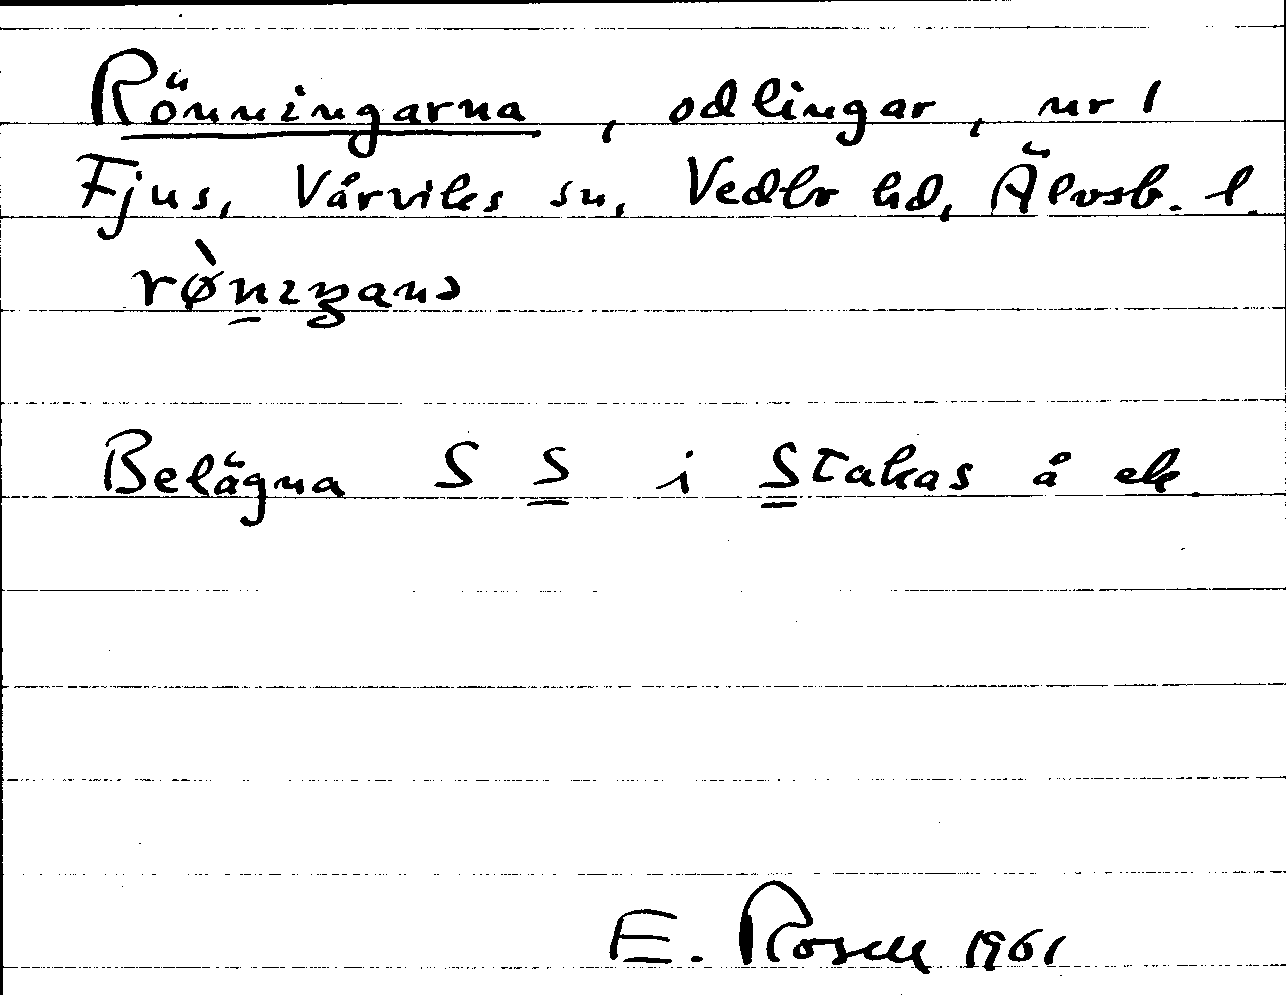 Rönningarna, odlingar, nr 1
Fjus, Vårviks sn, Vedbo hd, Älvsb. l.
rø̀nıŋanə
Belägna S S i Stakas å ek
E. Rosell 1961